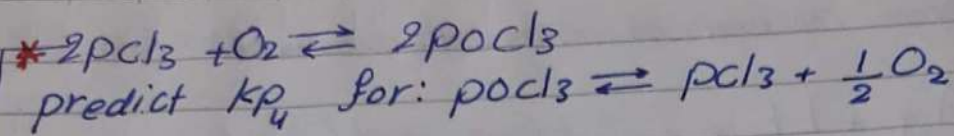 * 2pcl3 + O2 ⇌ 2pocl3
predict kp4 for: pocl3 ⇌ pcl3 + 1/2 O2